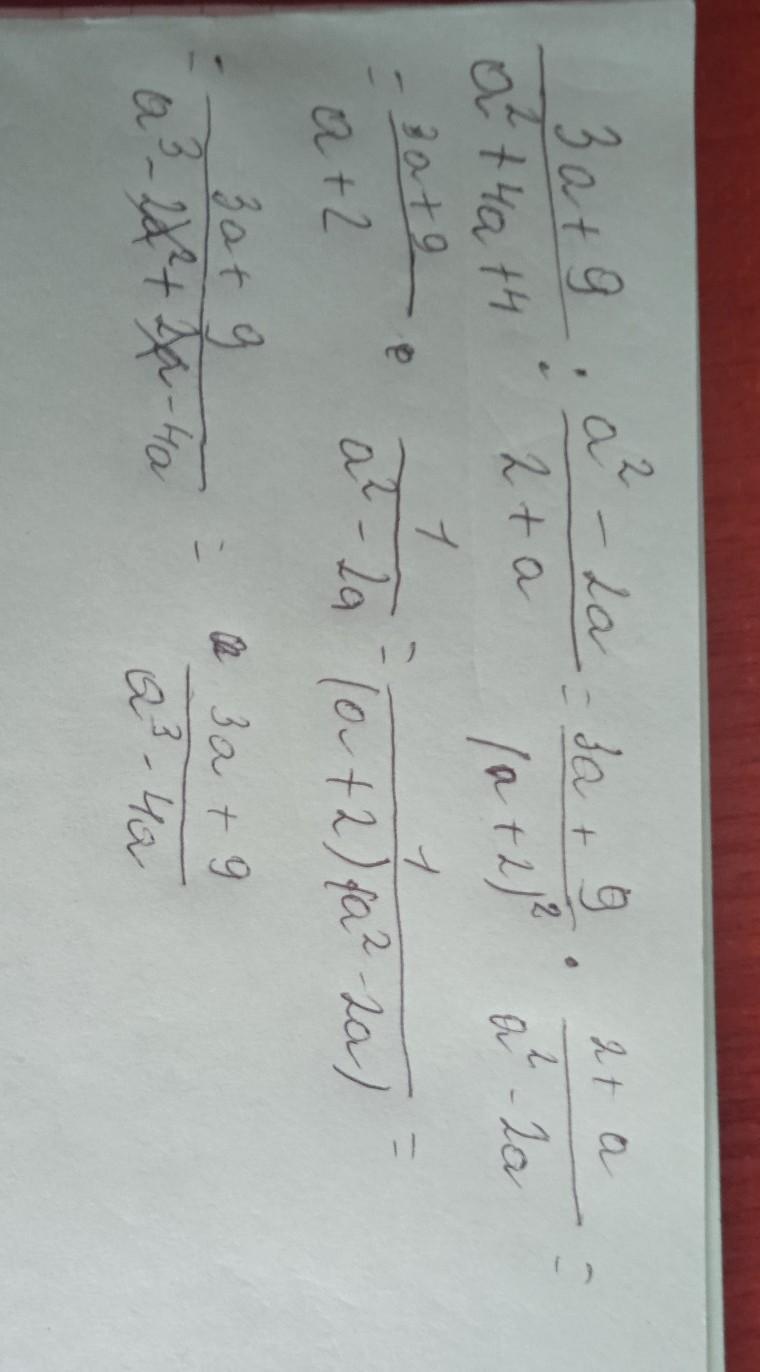 (3a+9)/(a²+4a+4) : (a²-2a)/(2+a) = (3a+9)/(a+2)² · (2+a)/(a²-2a) =
= (3a+9)/(a+2) · 1/(a²-2a) = 1/((a+2)(a²-2a)) =
= (3a+9)/(a³-2a²+2a-4a) = (3a+9)/(a³-4a)